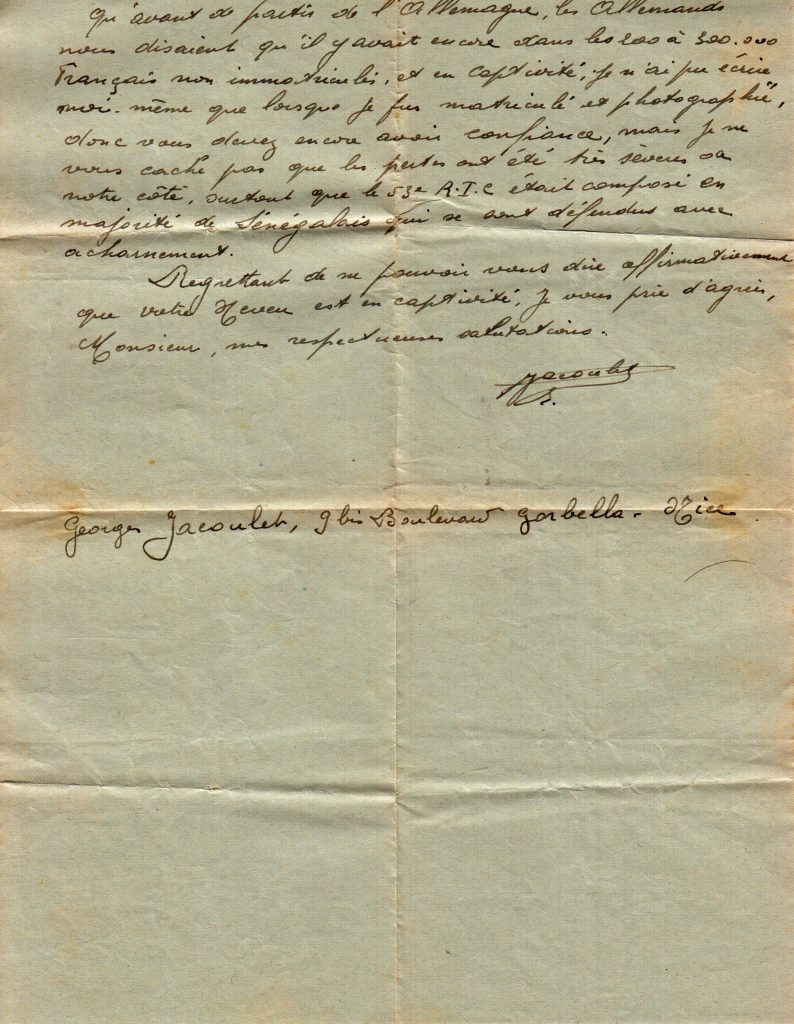 qu'avant de partir de l'Allemagne, les Allemands
nous disaient qu'il y avait encore dans les 200 à 300.000
Français non immatriculés, et en captivité, je n'ai pu écrire
moi-même que lorsque je fus matriculé et photographié,
donc vous devez encore avoir confiance, mais je ne
vous cache pas que les pertes ont été très sévères de
notre côté, surtout que le 53e R.I.C était composé en
majorité de Sénégalais qui se sont défendus avec
acharnement.
Regrettant de ne pouvoir vous dire affirmativement
que votre Neveu est en captivité, je vous prie d'agréer,
Monsieur, mes respectueuses salutations.
Jacoulet
Georges Jacoulet, 9 bis Boulevard Gorbella - Nice